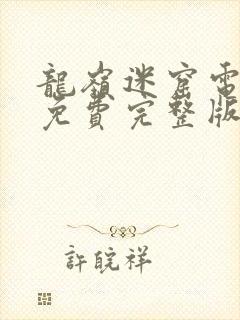 龍嶺迷窟電
免費完整版
許皖祥